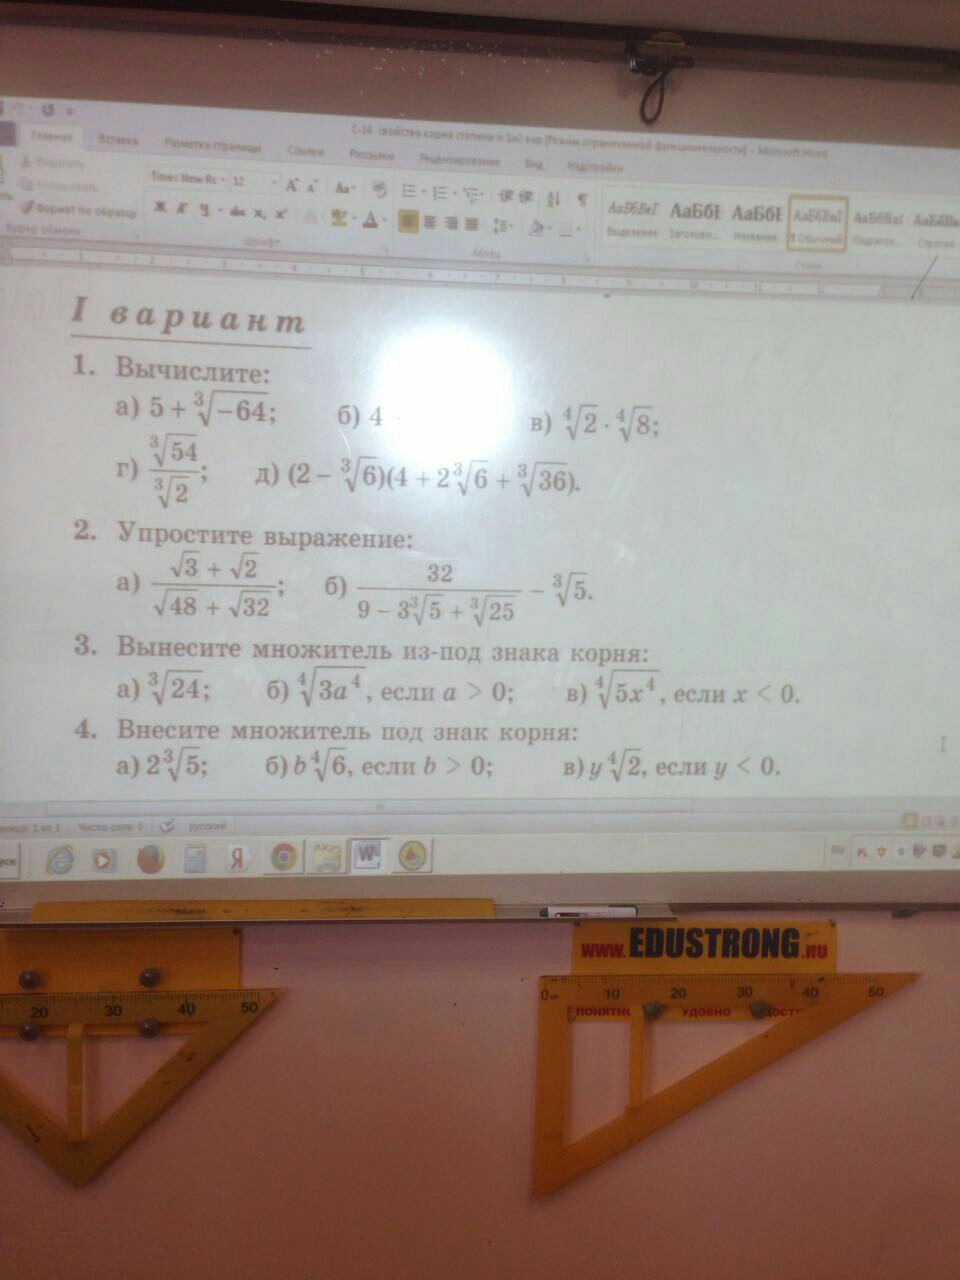 С-14 свойства корня степени n 1и2 вар [Режим ограниченной функциональности] - Microsoft Word
Главная Вставка Разметка страницы Ссылки Рассылки Рецензирование Вид Надстройки
Вырезать
Копировать
Формат по образцу
Буфер обмена
Times New Rc 12
Ж К Ч abc x₂ x²
Шрифт
Абзац
АаБбВвГ АаБбЕ АаБбЕ АаБбВвГ АаБбВвІ АаБбВв
Выделение Заголово... Название ¶ Обычный Подзагол... Строгий
Стили
I вариант
1. Вычислите:
а) 5 + ∛(−64); б) 4 в) ∜2 · ∜8;
г) ∛54/∛2; д) (2 − ∛6)(4 + 2∛6 + ∛36).
2. Упростите выражение:
а) (√3 + √2)/(√48 + √32); б) 32/(9 − 3∛5 + ∛25) − ∛5.
3. Вынесите множитель из-под знака корня:
а) ∛24; б) ∜(3a⁴), если a > 0; в) ∜(5x⁴), если x < 0.
4. Внесите множитель под знак корня:
а) 2∛5; б) b∜6, если b > 0; в) y∜2, если y < 0.
1 из 1 Число слов: 0 русский
RU
WWW.EDUSTRONG.RU
20 30 40 50
0 10 20 30 40 50
УДОБНО